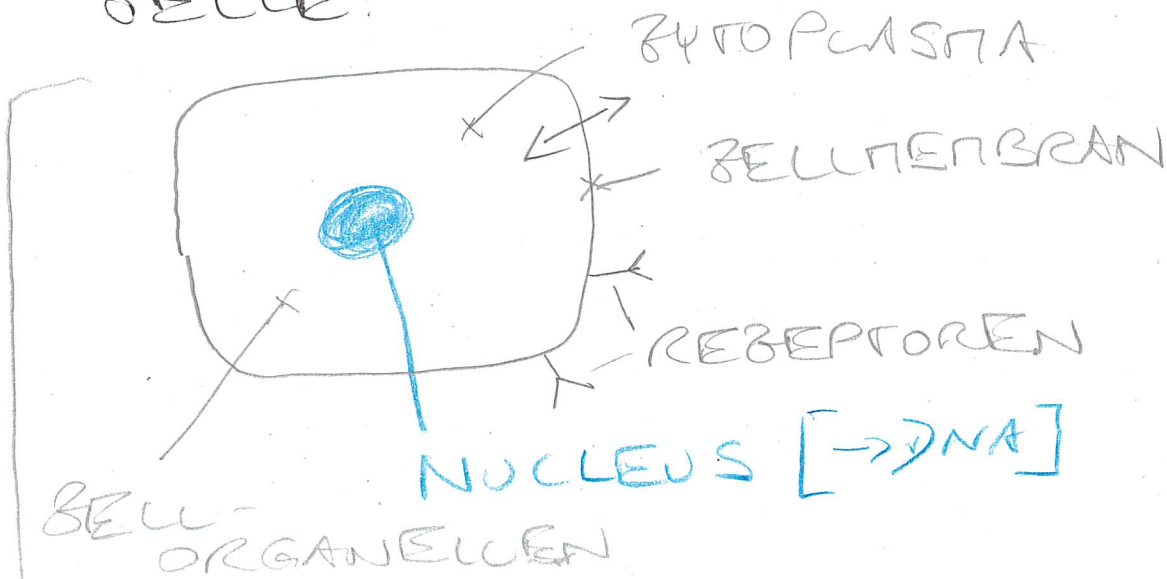 ZELLE:
ZYTOPLASMA
ZELLMEMBRAN
REZEPTOREN
NUCLEUS [→DNA]
ZELL-
ORGANELLEN